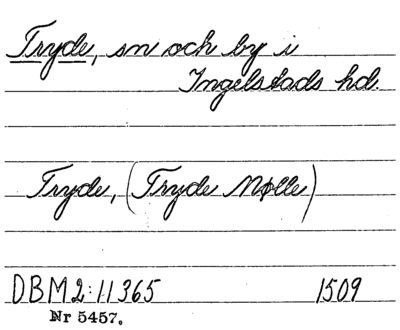 Tryde, sn och by i
Ingelstads hd.
Tryde, (Tryde Mølle)
DBM 2:11365 1509
Nr 5457.